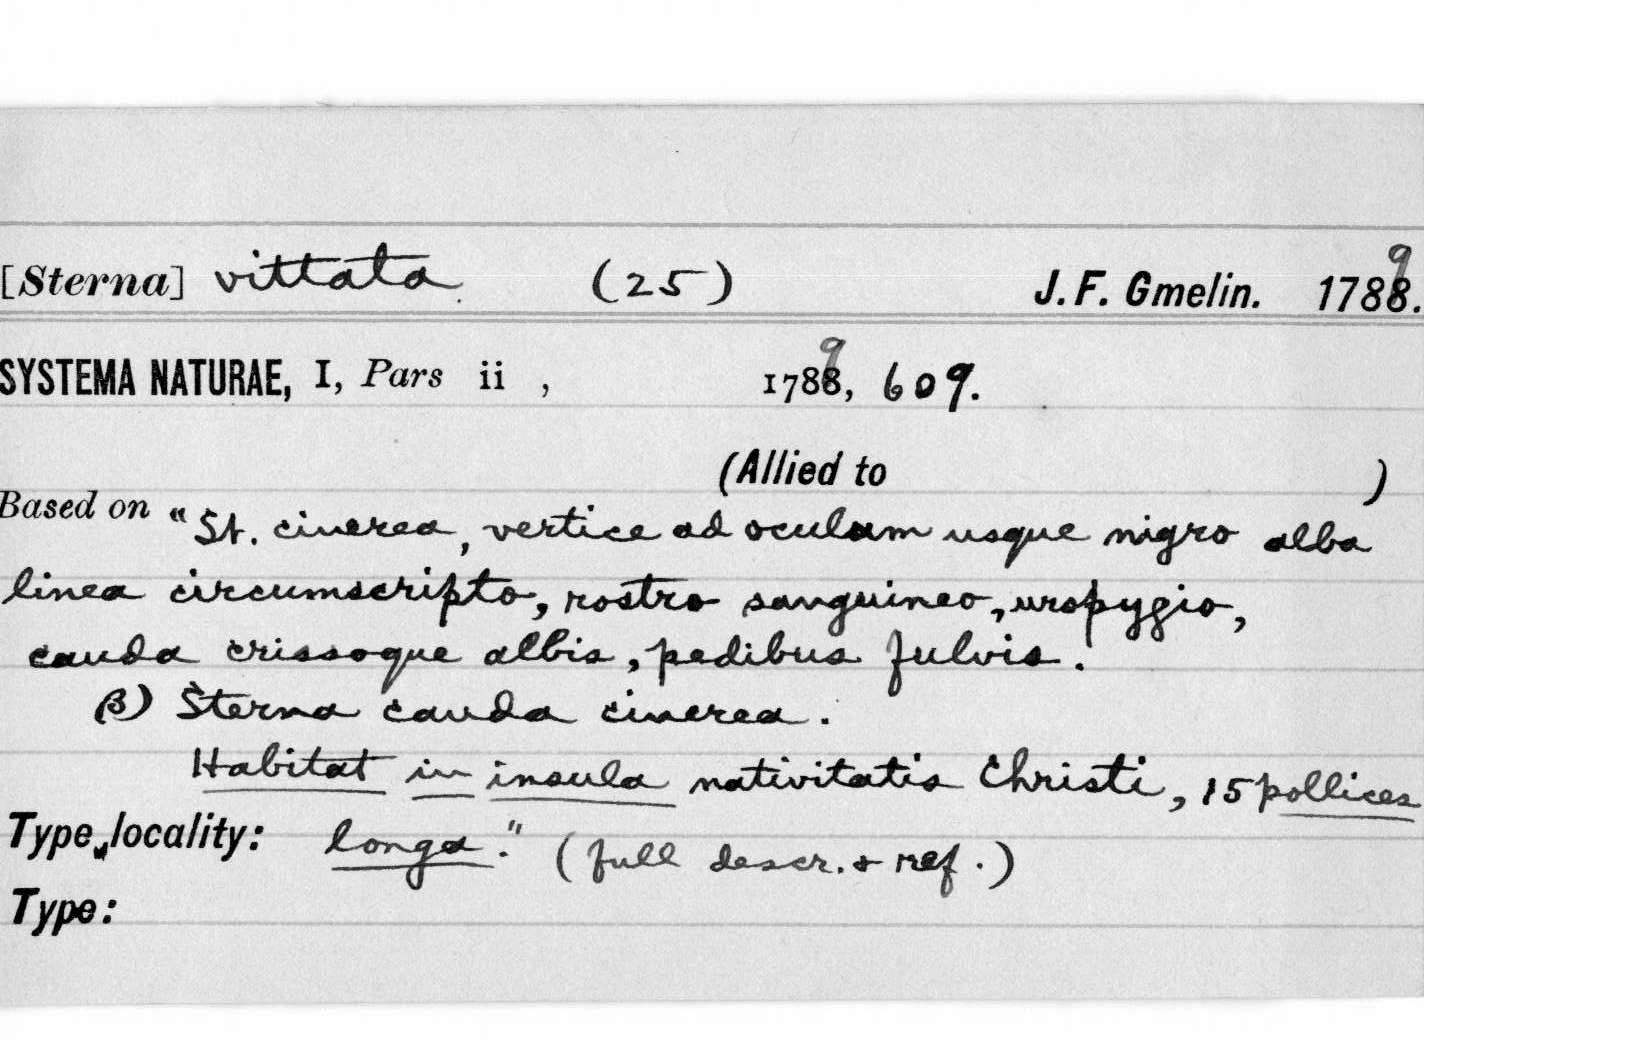 [Sterna] vittata (25) J. F. Gmelin. 1789.
SYSTEMA NATURAE, I, Pars ii , 1789, 609.
(Allied to )
Based on "St. cinerea, vertice ad oculum usque nigro alba
linea circumscripto, rostro sanguineo, uropygio,
cauda crissoque albis, pedibus fulvis.
β) Sterna cauda cinerea.
Habitat in insula nativitatis Christi, 15 pollices
Type locality: longa." (full descr. & ref.)
Type: